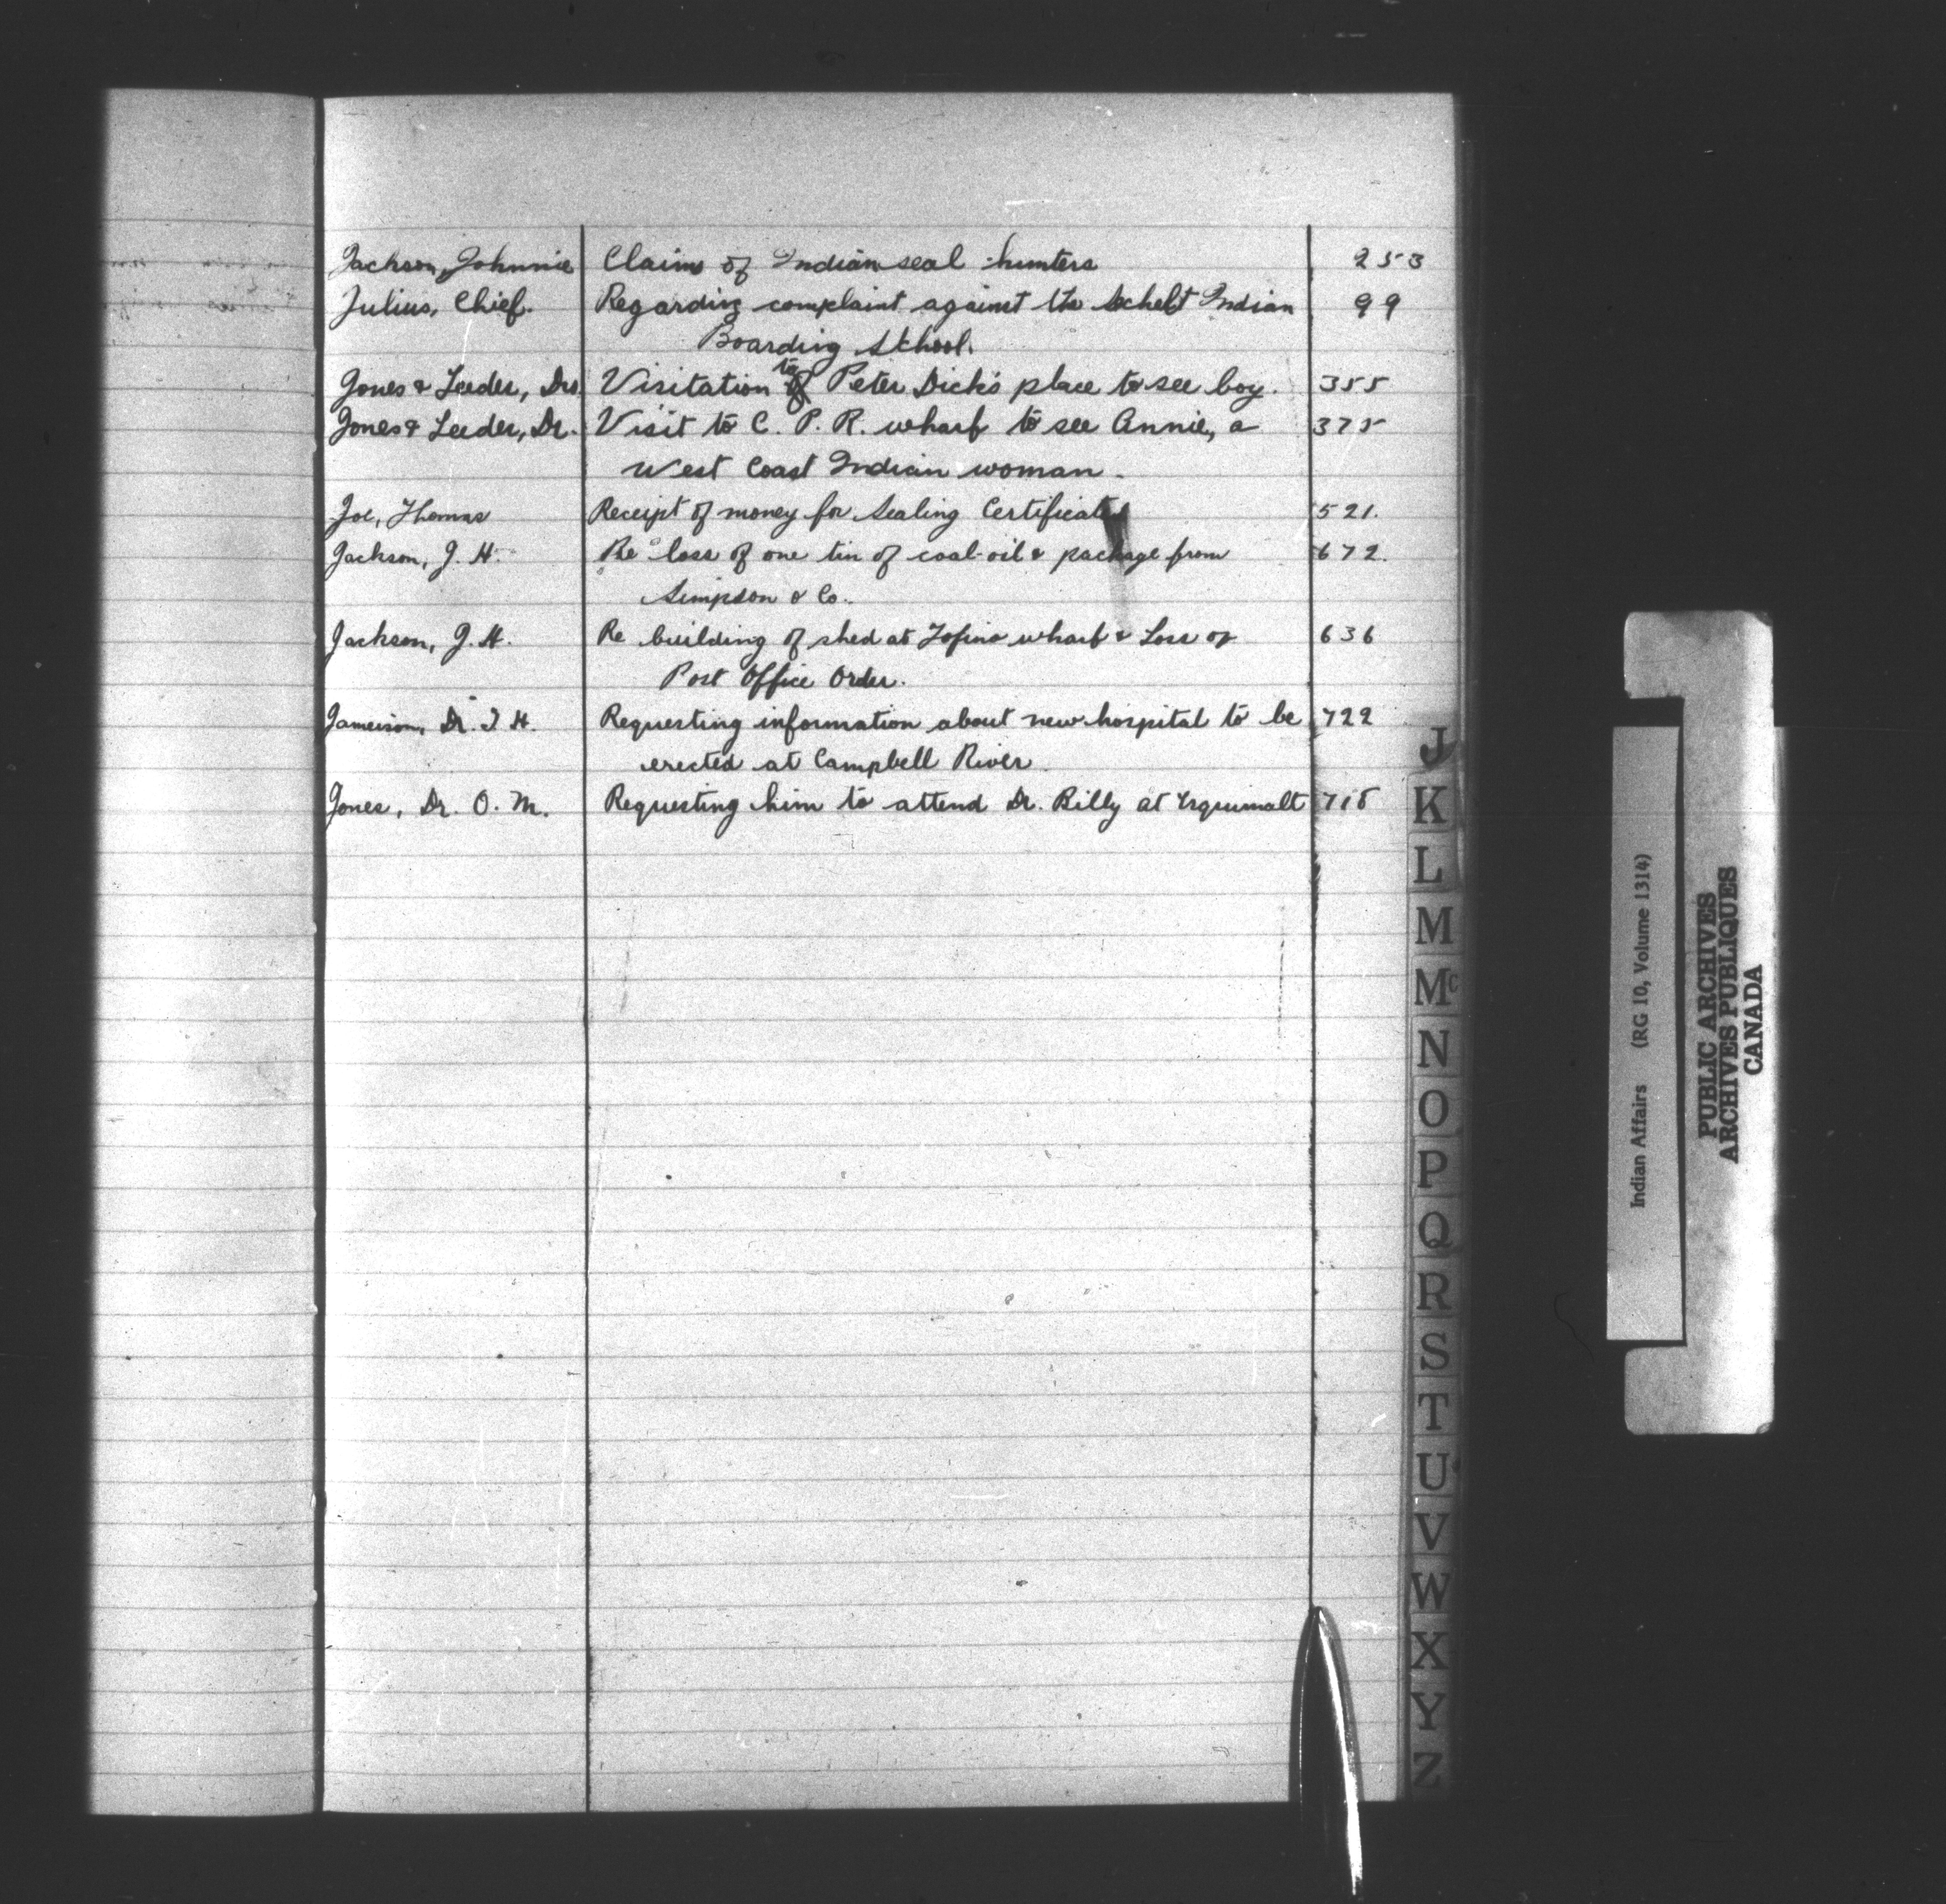 Jackson, Johnnie Claims of Indian seal hunters 253
Julius, Chief. Regarding complaint against the Sechelt Indian 99
Boarding School.
Jones & Leeder, Drs. Visitation to Peter Dick's place to see boy. 355
Jones & Leeder, Dr. Visit to C. P. R. wharf to see Annie, a 375
West Coast Indian woman.
Joe, Thomas Receipt of money for Sealing Certificate 521.
Jackson, J. H. Re loss of one tin of coal-oil & package from 672.
Simpson & Co.
Jackson, J. H. Re building of shed at Tofino wharf & Loss of 636
Post Office Order.
Jameison, Dr. J. H. Requesting information about new hospital to be 722
erected at Campbell River.
Jones, Dr. O. M. Requesting him to attend Dr. Billy at Esquimalt
J
K
L
M
Mc
N
O
P
Q
R
S
T
U
V
W
X
Y
Z
Indian Affairs (RG 10, Volume 1314)
PUBLIC ARCHIVES
ARCHIVES PUBLIQUES
CANADA